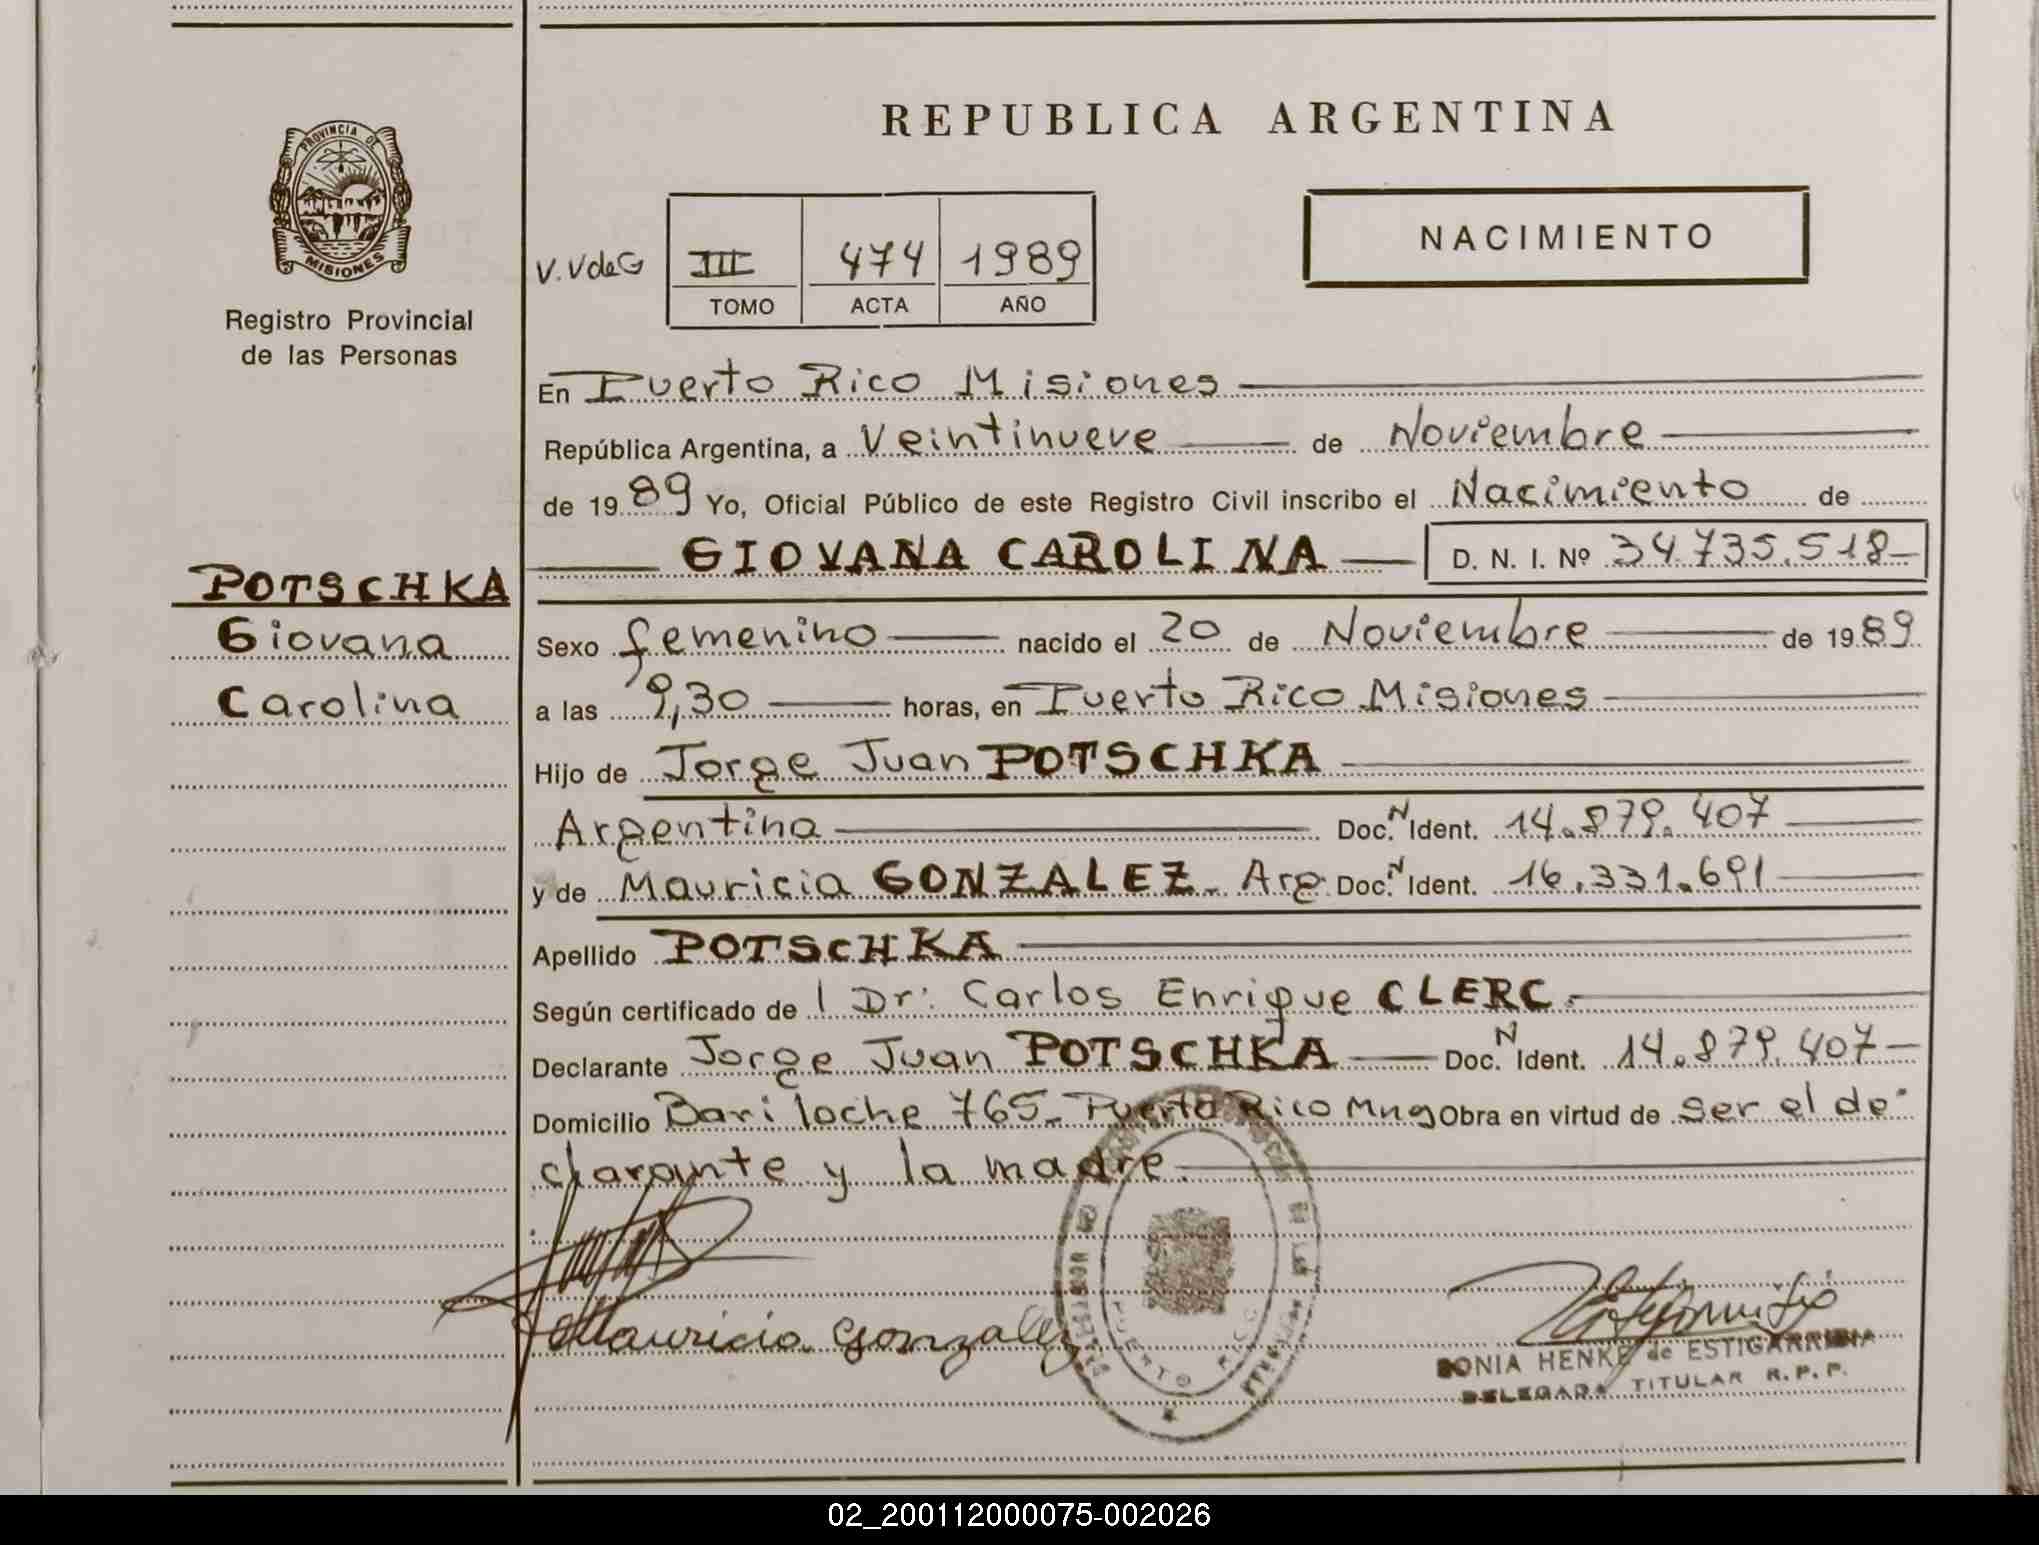 REPUBLICA ARGENTINA
PROVINCIA DE
MISIONES
Registro Provincial
de las Personas
V.VdeG III 474 1989
TOMO ACTA AÑO
NACIMIENTO
En Puerto Rico Misiones
República Argentina, a Veintinueve de Noviembre
de 1989 Yo, Oficial Público de este Registro Civil inscribo el Nacimiento de
GIOVANA CAROLINA D. N. I. Nº 34.735.518
POTSCHKA
Giovana
Carolina
Sexo femenino nacido el 20 de Noviembre de 1989
a las 9,30 horas, en Puerto Rico Misiones
Hijo de Jorge Juan POTSCHKA
Argentina Doc. N Ident. 14.879.407
y de Mauricia GONZALEZ. Arg. Doc. N Ident. 16.331.691
Apellido POTSCHKA
Según certificado de l Dr: Carlos Enrique CLERC.
Declarante Jorge Juan POTSCHKA Doc. N Ident. 14.879.407
Domicilio Bariloche 765 Puerto Rico Mnes Obra en virtud de ser el de-
clarante y la madre.
Mauricia Gonzalez
PUERTO RICO
SONIA HENKE de ESTIGARRIBIA
DELEGADA TITULAR R.P.P.
02_200112000075-002026